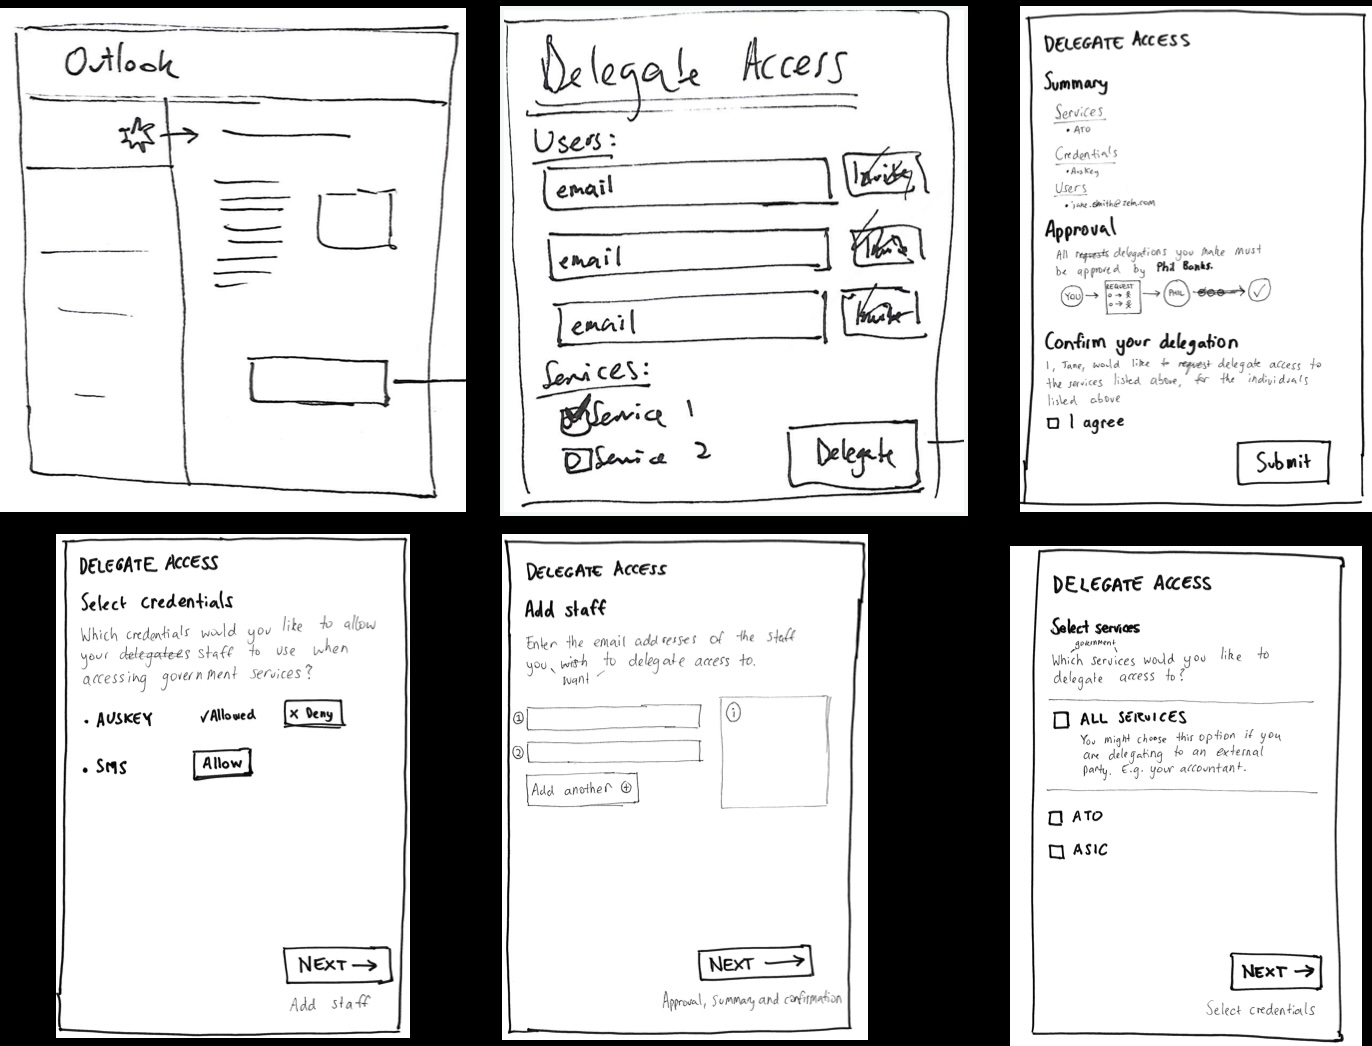 Outlook
Delegate Access
Users:
email
Invite
email
Invite
email
Invite
Services:
Service 1
Service 2
Delegate
DELEGATE ACCESS
Summary
Services
• ATO
Credentials
• AusKey
Users
Approval
All requests delegations you make must
be approved by Phil Banks.
YOU
REQUEST
PHIL
Confirm your delegation
I, Jane, would like to request delegate access to
the services listed above, for the individuals
listed above
I agree
Submit
DELEGATE ACCESS
Select credentials
Which credentials would you like to allow
your delegatees staff to use when
accessing government services?
• AUSKEY ✓Allowed x Deny
• SMS Allow
NEXT →
Add staff
DELEGATE ACCESS
Add staff
Enter the email addresses of the staff
you wish to delegate access to.
want
i
1
2
Add another +
NEXT →
Approval, summary and confirmation
DELEGATE ACCESS
Select services
government
Which services would you like to
delegate access to?
ALL SERVICES
You might choose this option if you
are delegating to an external
party. E.g. your accountant.
ATO
ASIC
NEXT →
Select credentials